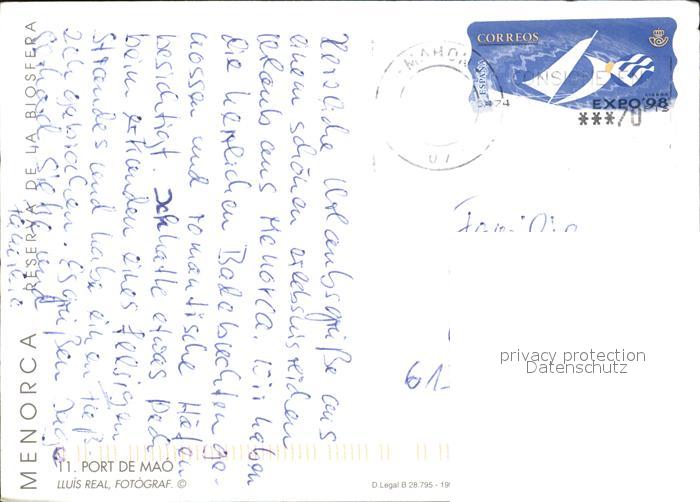 MENORCA RESERVA DE LA BIOSFERA
Herzliche Urlaubsgrüße aus
einem schönen erlebnisreichen
Urlaub aus Menorca. Wir haben
die herrlichen Badebuchten ge-
nossen und romantische Häfen
besichtigt. Ich hatte etwas Pech
beim erkunden eines felsigen
Strandes und habe einen Fuß
Es grüßen Inge
Gerhard und
Familie
11. PORT DE MAÓ
LLUÍS REAL, FOTÒGRAF. ©
D.Legal B 28.795 - 19
CORREOS
ESPAÑA
EXPO'98
LISBOA
***70
MAHON
07
Familie
61
privacy protection
Datenschutz